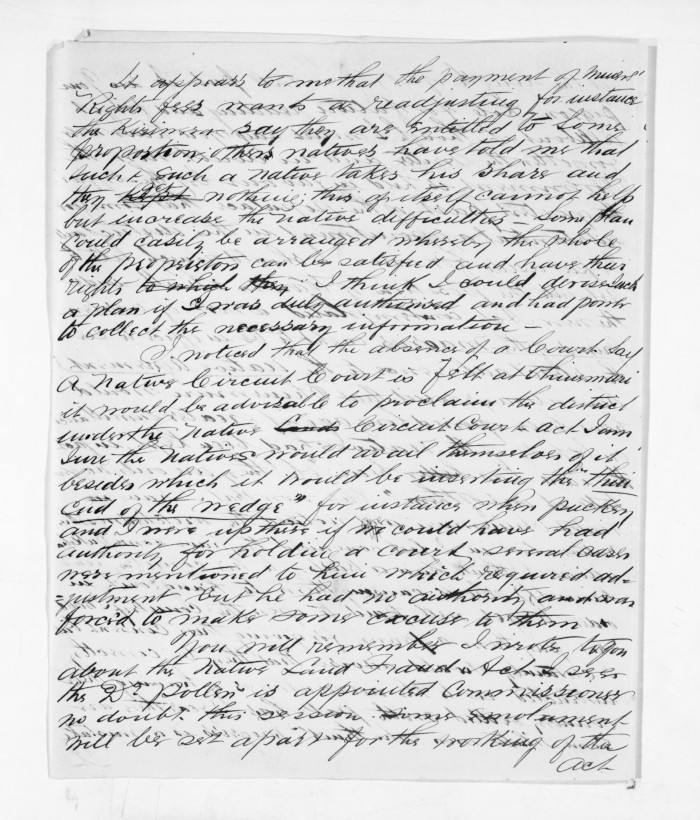 It appears to me that the payment of Miners'
Rights fees wants a readjusting for instance
the say they are entitled to some
proportion, others natives have told me that
such & such a native takes his share and
they kept nothing; this of itself cannot help
but increase the native difficulties some plan
could easily be arranged whereby the whole
of the proprietors can be satisfied and have their
rights to which they I think I could devise such
a plan if I was duly authorised and had power
to collect the necessary information —
I noticed that the absence of a Court say
a Native Circuit Court is felt at Ohinemuri
it would be advisable to proclaim the district
under the Native Lands Circuit Courts Act I am
sure the Natives would avail themselves of it
besides which it would be inserting the "thin
end of the wedge" for instance when Puckey
and I were up there if we could have had
authority for holdin a court several cases
were mentioned to him which required ad-
=justment but he had no authority and was
forced to make some excuse to them.
You will remember I wrote to you
about the Native Land Fraud Act I see
the Dr. Pollen is appointed Commissioner
no doubt this session some emolument
will be set apart for the working of the
Act